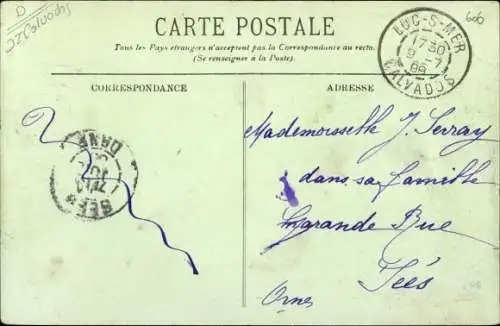 CARTE POSTALE
Tous les Pays étrangers n'acceptent pas la Correspondance au recto.
(Se renseigner à la Poste).
LUC-S-MER
17 30
9 -7
CALVADOS
CORRESPONDANCE
ADRESSE
Mademoiselle J. Serray
dans sa famille
grande Rue
Sées
Orne
ORNE
SEES